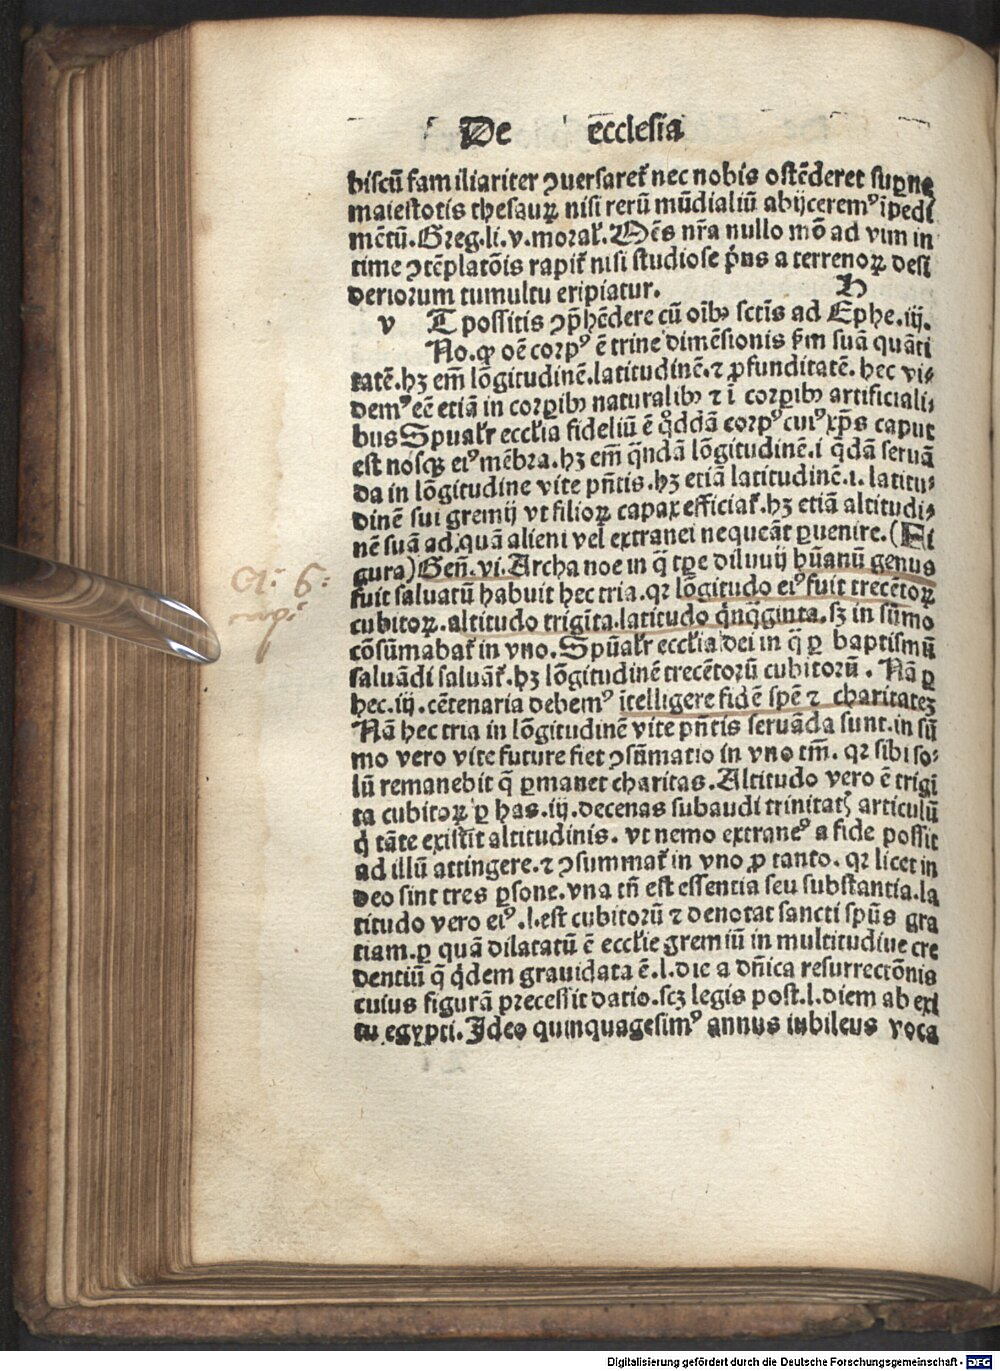 De ecclesia
biscū familiariter ꝯuersareť nec nobis ostēderet suꝑne
maiestotis thesauꝝ nisi rerū mūdialiū abijceremꝰ īpedi
mētū. Greg. li. v. moraľ. Mēs nr̄a nullo mō ad vim in
time ꝯtēplatōis rapiť nisi studiose p̄us a terrenoꝝ desi
deriorum tumultu eripiatur. H
v T possitis ꝯp̄hēdere cū oībꝫ sctīs ad Ephe. iij.
No. ꝙ oē corpꝰ ē trine dimēsionis ẜm suā quāti
tatē. hꝫ em̄ lōgitudinē. latitudinē. ⁊ ꝓfunditatē. hec vi⸗
demꝰ eē etiā in corꝑibꝫ naturalibꝫ ⁊ ī corꝑibꝫ artificiali⸗
bus Spualr̄ eccľia fideliū ē qͦddā corpꝰ cuiꝰ xp̄s caput
est nosqꝫ eiꝰ mēbra. hꝫ em̄ qūdā lōgitudinē. i qͣdā seruā
da in lōgitudine vite pn̄tis. hꝫ etiā latitudinē. i. latitu⸗
dinē sui gremij vt filioꝝ capax efficiať. hꝫ etiā altitudi⸗
nē suā ad quā alieni vel extranei nequeāt ꝑuenire. (Fi
gura) Geñ. vi. Archa noe in q̄ tꝑe diluuij hūanū genus
fuit saluatū habuit hec tria. qꝛ lōgitudo eiꝰ fuit trecētoꝝ
cubitoꝝ. altitudo trigīta. latitudo qͥnqͣginta. sꝫ in sūmo
cōsūmabať in vno. Spūalr̄ eccľia dei in q̄ ꝑ baptismū
saluādi saluāť. hꝫ lōgitudinē trecētorū cubitorū. Nā ꝑ
hec. iij. cētenaria debemꝰ ītelligere fidē spē ⁊ charitateꝫ
Nā hec tria in lōgitudinē vite pn̄tis seruāda sunt. in sū
mo vero vite future fiet ꝯsūmatio in vno tm̄. qꝛ sibi so⸗
lū remanebit q̄ ꝑmanet charitas. Altitudo vero ē trigī
ta cubitoꝝ ꝑ has. iij. decenas subaudi trinitatꝭ articulū
q̇ tāte existit altitudinis. vt nemo extraneꝰ a fide possit
ad illū attingere. ⁊ ꝯsummať in vno ꝓ tanto. qꝛ licet in
deo sint tres ꝑsone. vna tn̄ est essentia seu substantia. la
titudo vero eiꝰ. l. est cubitorū ⁊ denotat sancti spūs gra
tiam. ꝑ quā dilatatū ē eccľie gremiū in multitudiue cre
dentiū q̄ qͥdem grauidata ē. l. die a dn̄ica resurrectōnis
cuius figurā precessit datio. scꝫ legis post. l. diem ab exi
tu egypti. Ideo quinquagesimꝰ annus iubileus voca